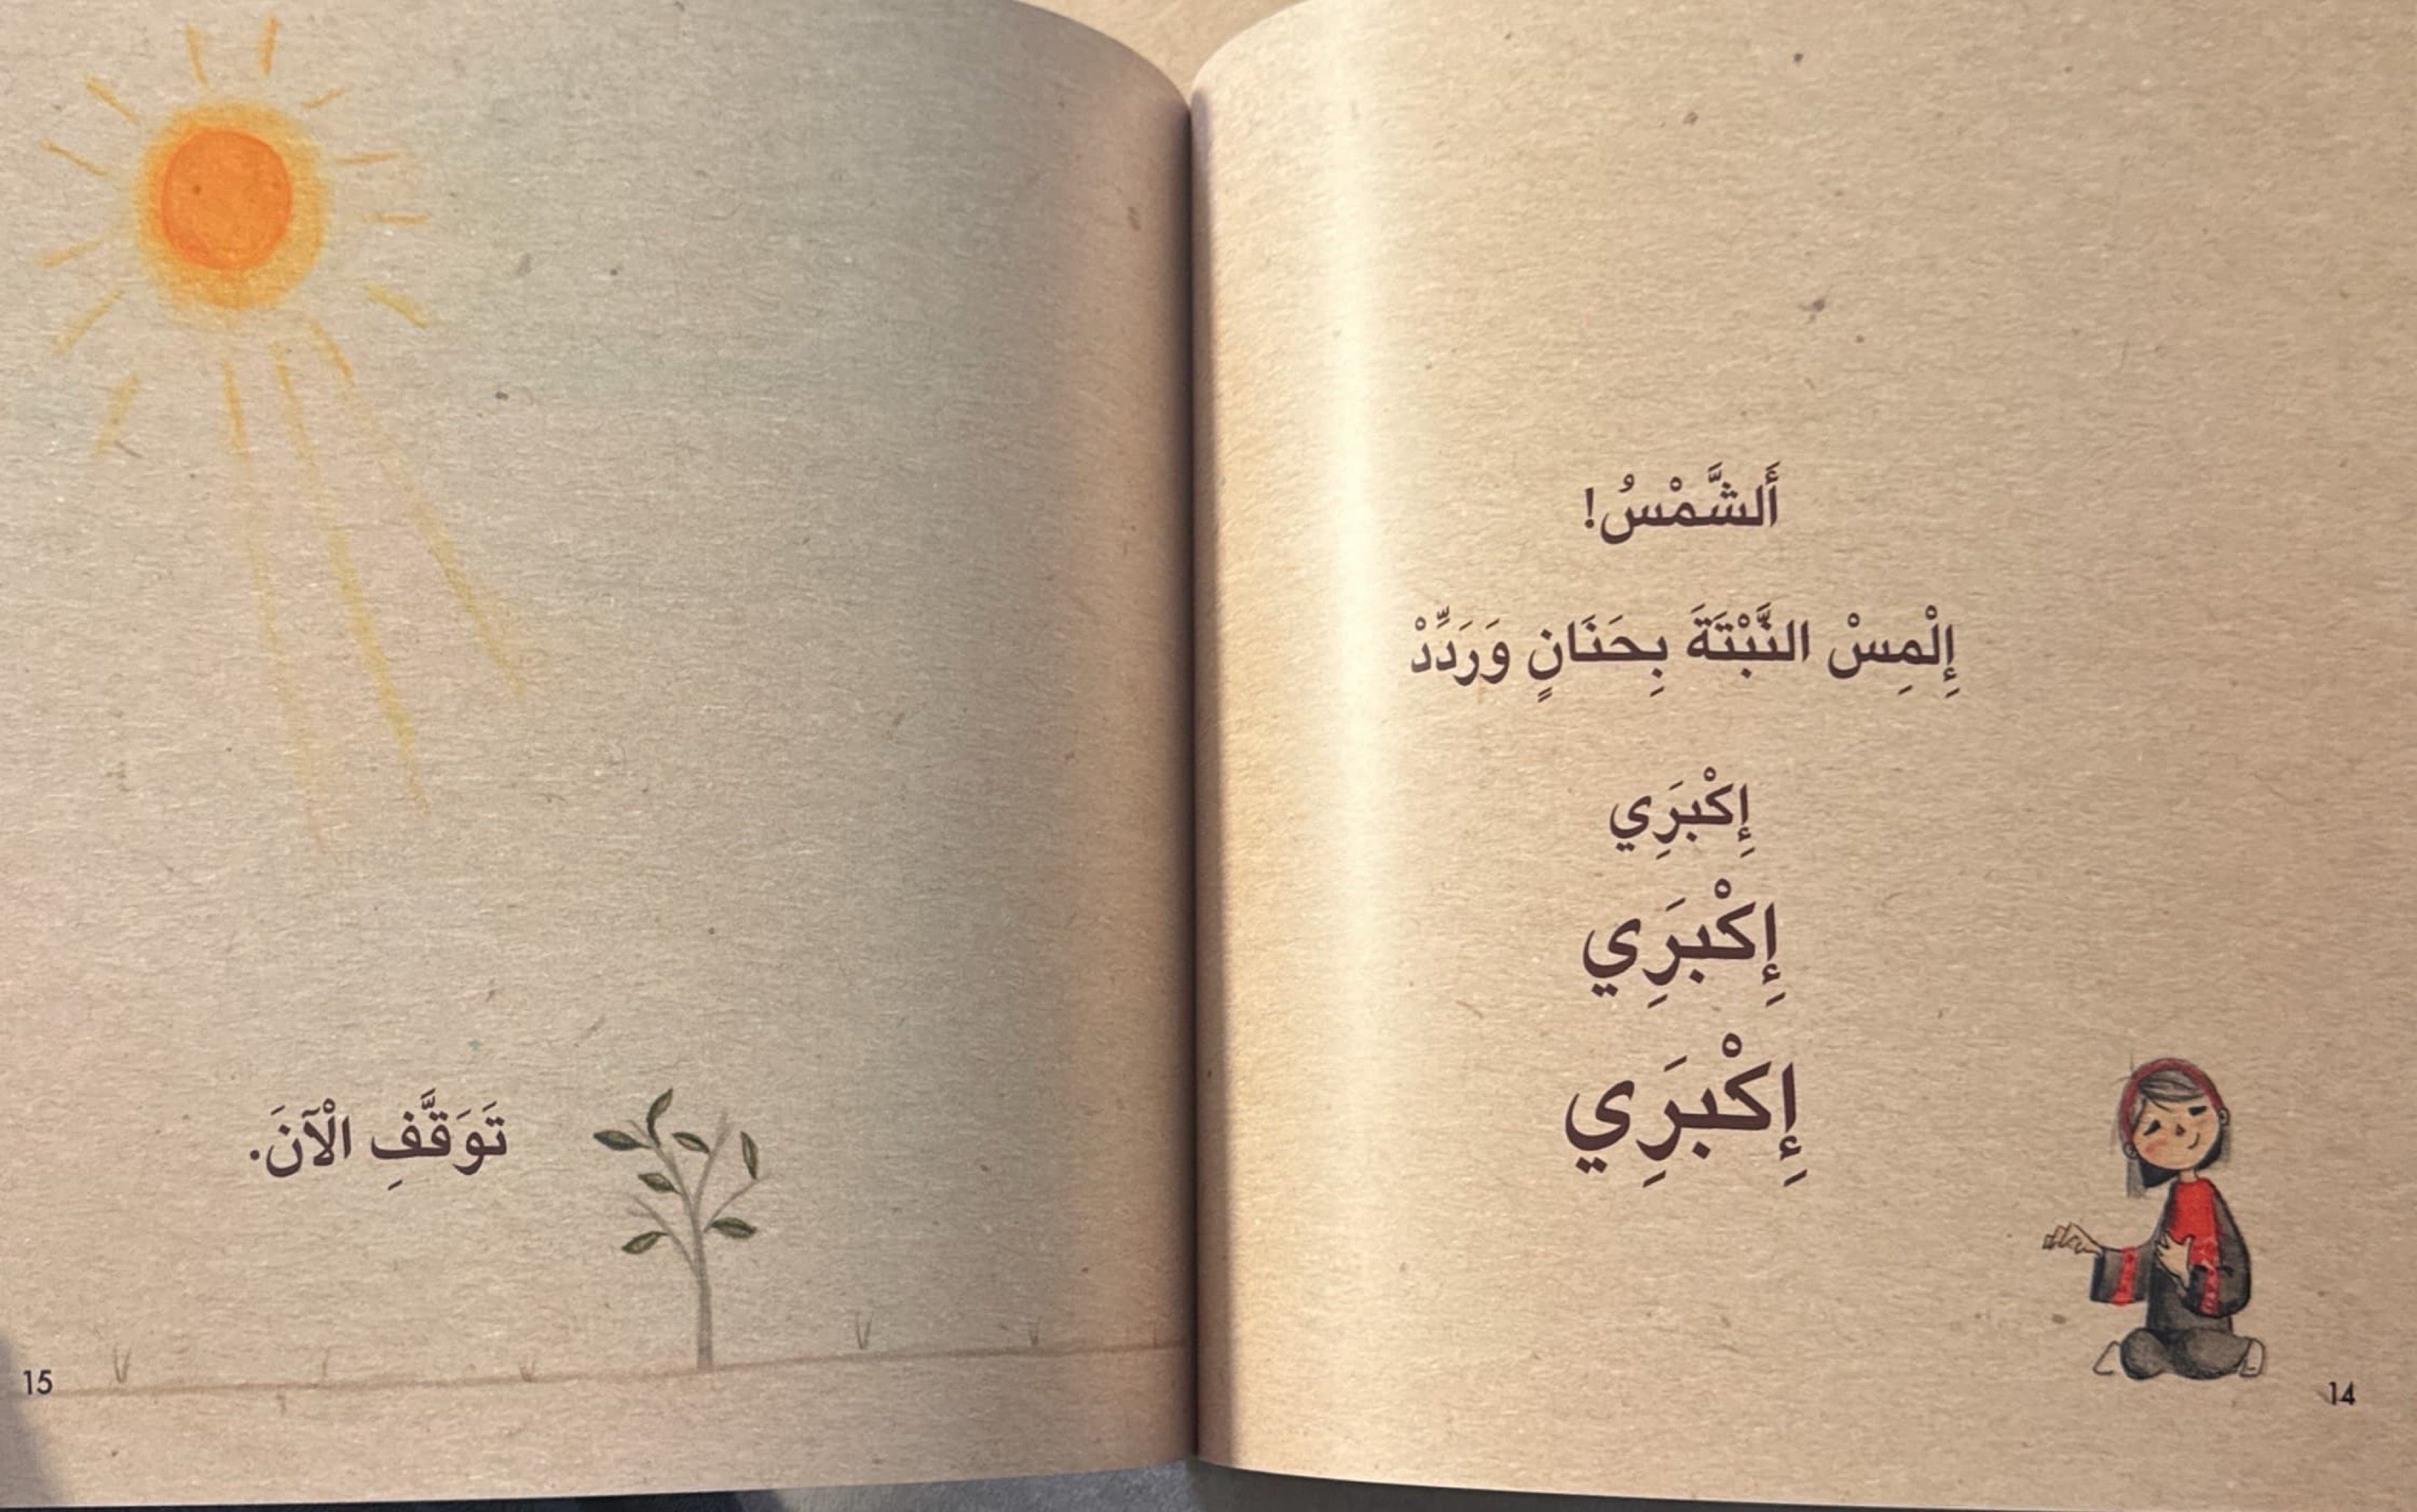 أَلشَّمْسُ!
إِلْمِسْ النَّبْتَةَ بِحَنَانٍ وَرَدِّدْ
إِكْبَرِي
إِكْبَرِي
إِكْبَرِي
14
تَوَقَّفِ الْآنَ.
15